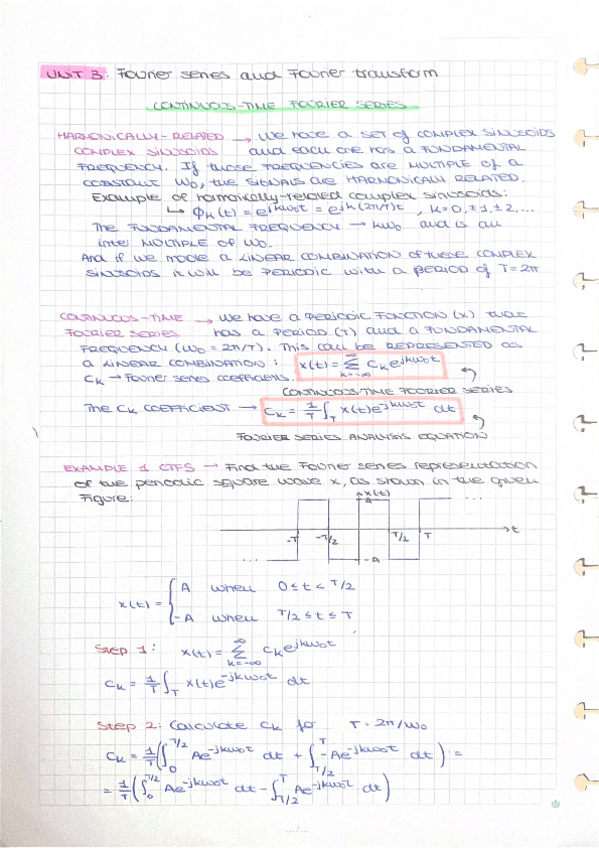 UNIT 3: Fourier series and Fourier transform
CONTINUOUS-TIME FOURIER SERIES
HARMONICALLY-RELATED → We have a SET of COMPLEX SINUSOIDS
COMPLEX SINUSOIDS and each one has a FUNDAMENTAL
FREQUENCY. If those FREQUENCIES are MULTIPLE of a
CONSTANT ω₀, the SIGNALS are HARMONICALLY RELATED.
Example of harmonically-related complex sinusoids:
↳ ϕₖ(t) = e^{jkω₀t} = e^{jk(2π/T)t} , k=0, ±1, ±2, ...
The FUNDAMENTAL FREQUENCY → kω₀ and is an
inter MULTIPLE of ω₀.
And if we made a LINEAR COMBINATION of these COMPLEX
SINUSOIDS it will be PERIODIC with a PERIOD of T=2π
CONTINUOUS-TIME → We have a PERIODIC FUNCTION (x) that
FOURIER SERIES has a PERIOD (T) and a FUNDAMENTAL
FREQUENCY (ω₀ = 2π/T). This can be REPRESENTED as
a LINEAR COMBINATION: x(t) = ∑_{k=-∞}^{∞} Cₖ e^{jkω₀t}
Cₖ → Fourier series coefficients.
CONTINUOUS-TIME FOURIER SERIES
The Cₖ COEFFICIENT → Cₖ = 1/T ∫_T x(t)e^{-jkω₀t} dt
FOURIER SERIES ANALYSIS EQUATION
EXAMPLE 1 CTFS → Find the Fourier series representation
of the periodic square wave x, as shown in the given
Figure:
x(t)
A
... t
-T -T/2 T/2 T
... -A
x(t) = { A when 0 ≤ t < T/2
-A when T/2 ≤ t ≤ T
Step 1: x(t) = ∑_{k=-∞}^{∞} Cₖ e^{jkω₀t}
Cₖ = 1/T ∫_T x(t)e^{-jkω₀t} dt
Step 2: Calculate Cₖ for T=2π/ω₀
Cₖ = 1/T (∫_0^{T/2} Ae^{-jkω₀t} dt + ∫_{T/2}^{T} -Ae^{-jkω₀t} dt) =
= 1/T (∫_0^{T/2} Ae^{-jkω₀t} dt - ∫_{T/2}^{T} Ae^{-jkω₀t} dt)
.../...